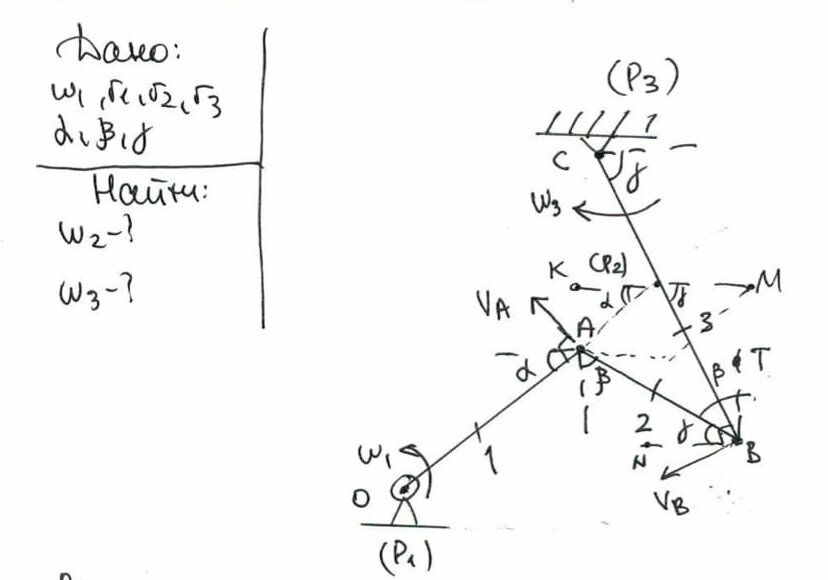 Дано:
ω₁, r₁, r₂, r₃
α, β, γ
Найти:
ω₂-?
ω₃-?
(P₃)
C
γ
ω₃
K
(P₂)
α
γ
M
V_A
A
3
α
β
β
T
2
γ
N
B
1
ω₁
V_B
O
(P₁)